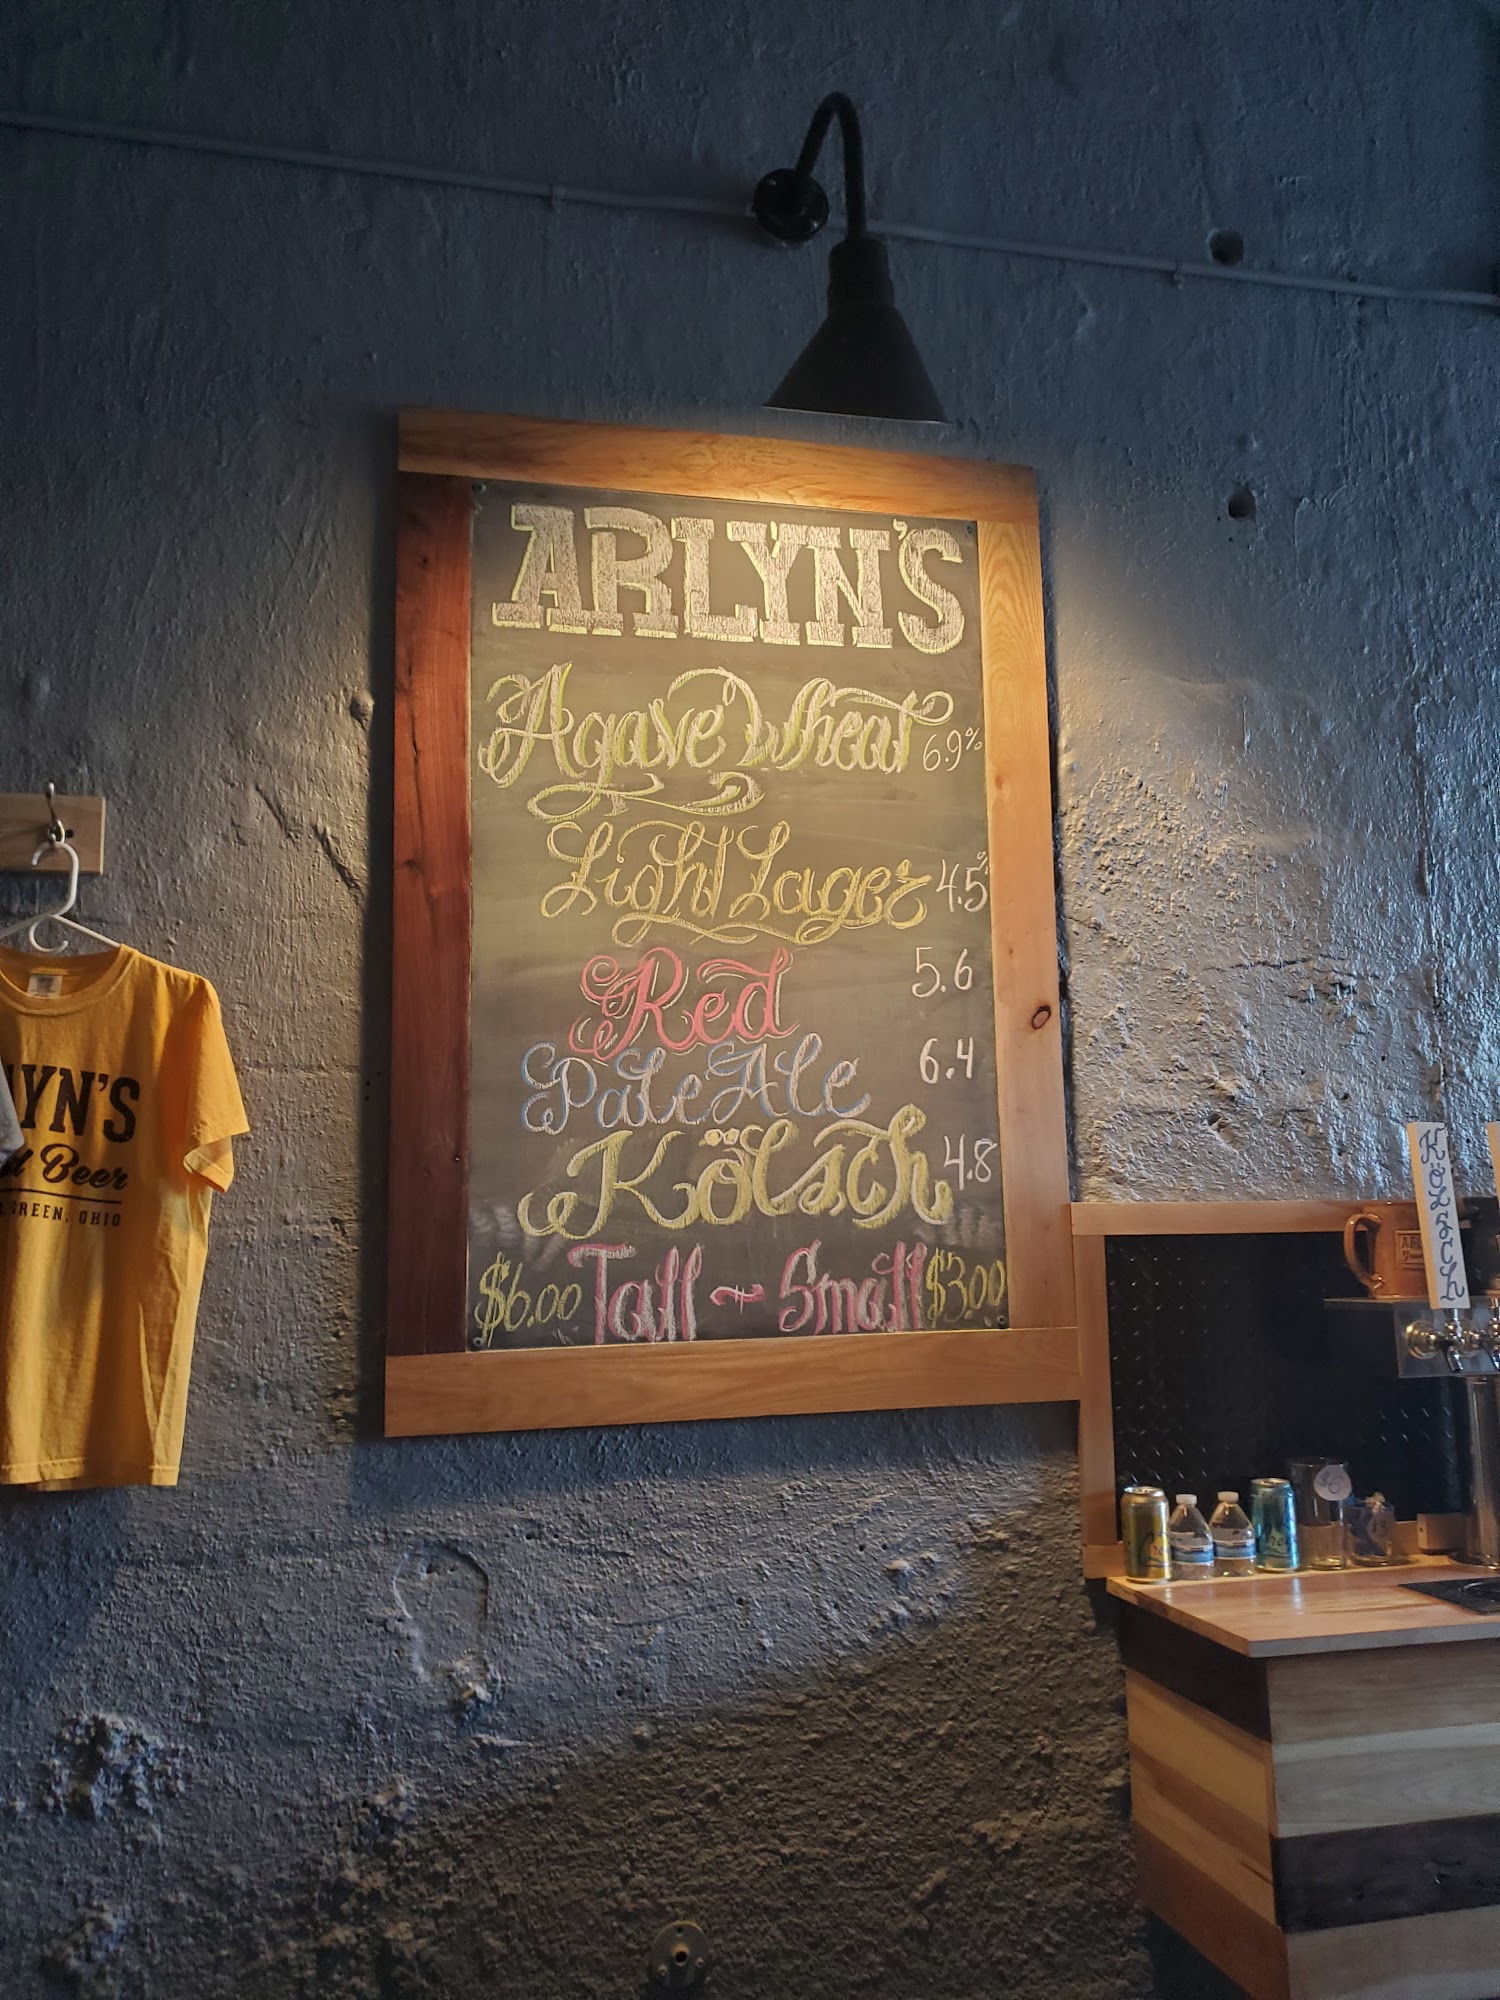 ARLYN'S
Agave Wheat 6.9%
Light Lager 4.5%
Red 5.6
Pale Ale 6.4
Kölsch 4.8
$6.00 Tall ~ Small $3.00
LYN'S
Beer
GREEN, OHIO
KÖLSCH